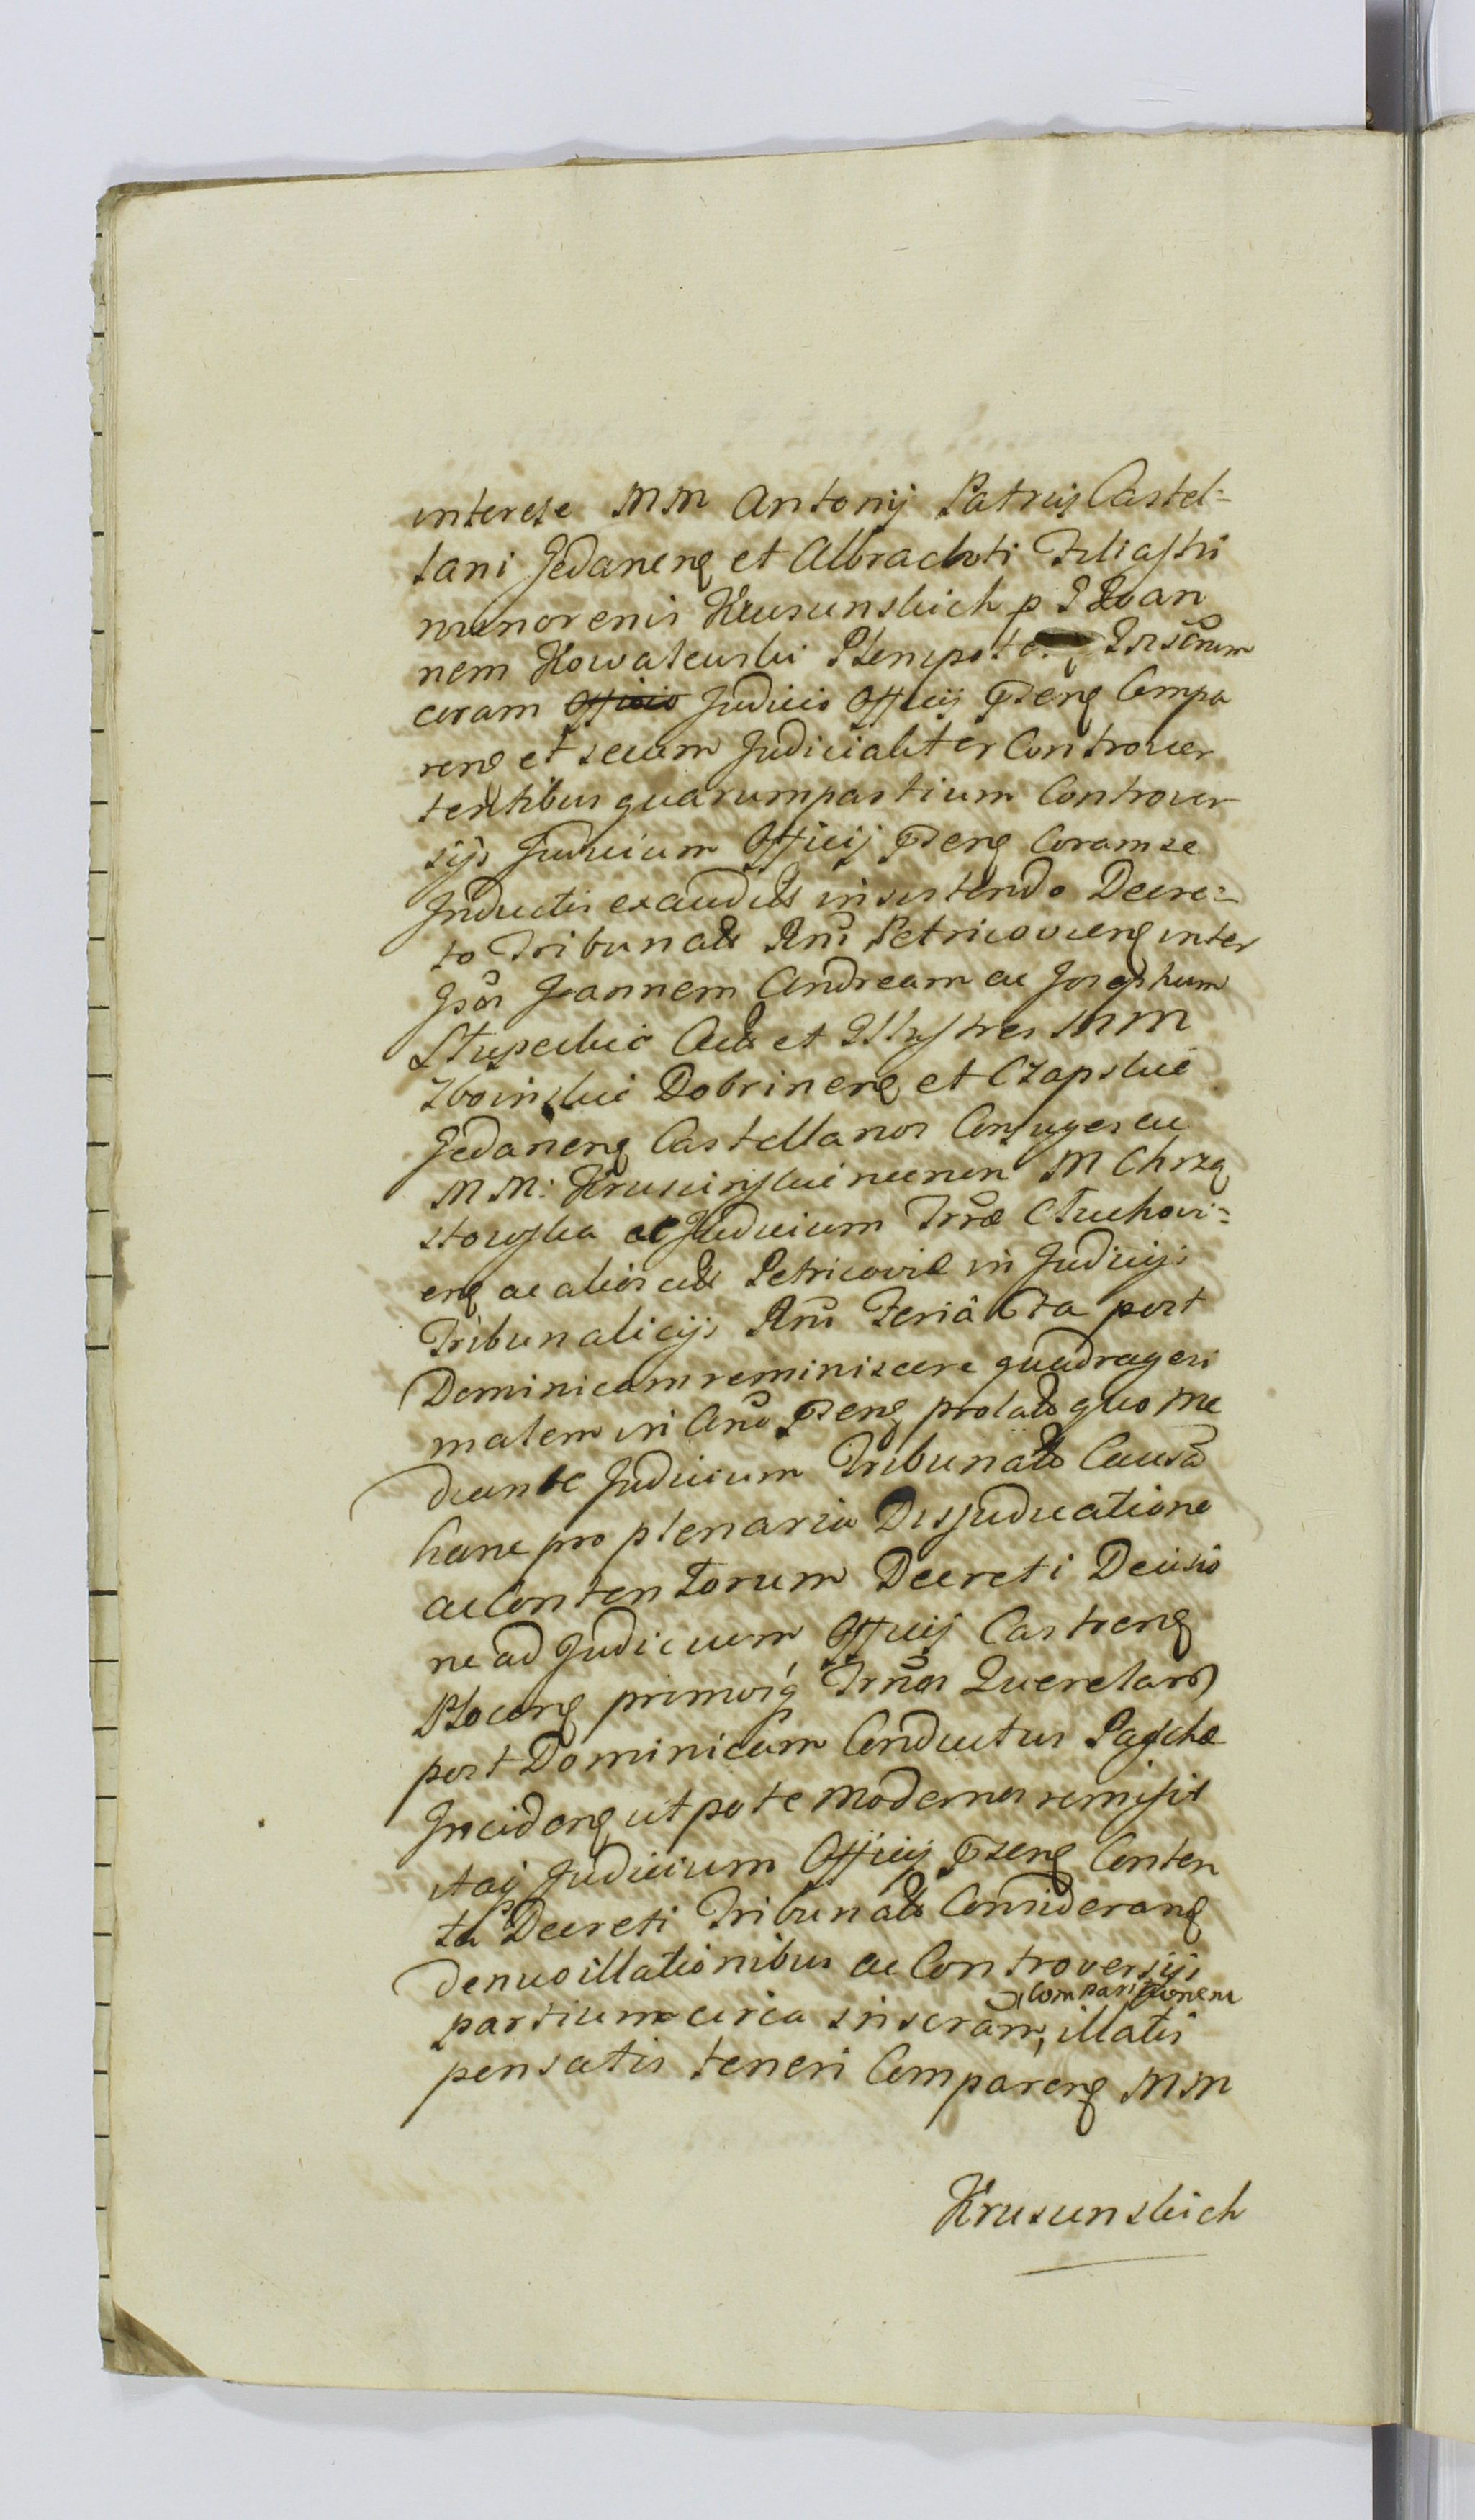 interese MM Antonij Patris Castel=
lani Gedanenq et Albrachti Filiastri
minorenis Krusunskich p G Joan
nem Kowalewski Plenipote. Ipsorum
coram Officio Judicio Officij Psenq Compa
renq et secum Judicialiter Controver
tentibus quarum partium Controver
sijs Judicium Officij Psenq Coram se
Inductis exauditis insistendo Decre=
to Tribunalis Rni Petricovienq inter
Gsos Joannem Andream ac Josephum
Slupeckie Act et Illustres MM
Zboinskie Dobrinenq et Czapskie
Gedanenq Castellanos Conjuges ac
MM: Krusinskie necnon M Chrzą
stowska ac Judicium Trræ Cłuchovi=
enq ac alios citt Petricoviæ in Judicijs
Tribunalicijs Rni Feria 6ta post
Dominicam reminiscere quadragesi
malem in Ano Psenq prolatt quo me
diante Judicium Tribunalis Causã
hanc pro plenaria Disjudicatione
ac Contentorum Decreti Decisio
ne ad Judicium Officij Castrenq
Plocenq primosq Trnos Querelarũ
post Dominicam Conductus Paschæ
Incidenq utpote modernos remisit
itaq Judicium Officij Psenq Conten
ta Decreti Tribunalis Considerang
denuo illationibus ac Controversijs
partium circa inscram, comparitionem illatis
pensatis teneri Comparenq MM
Krusunskich